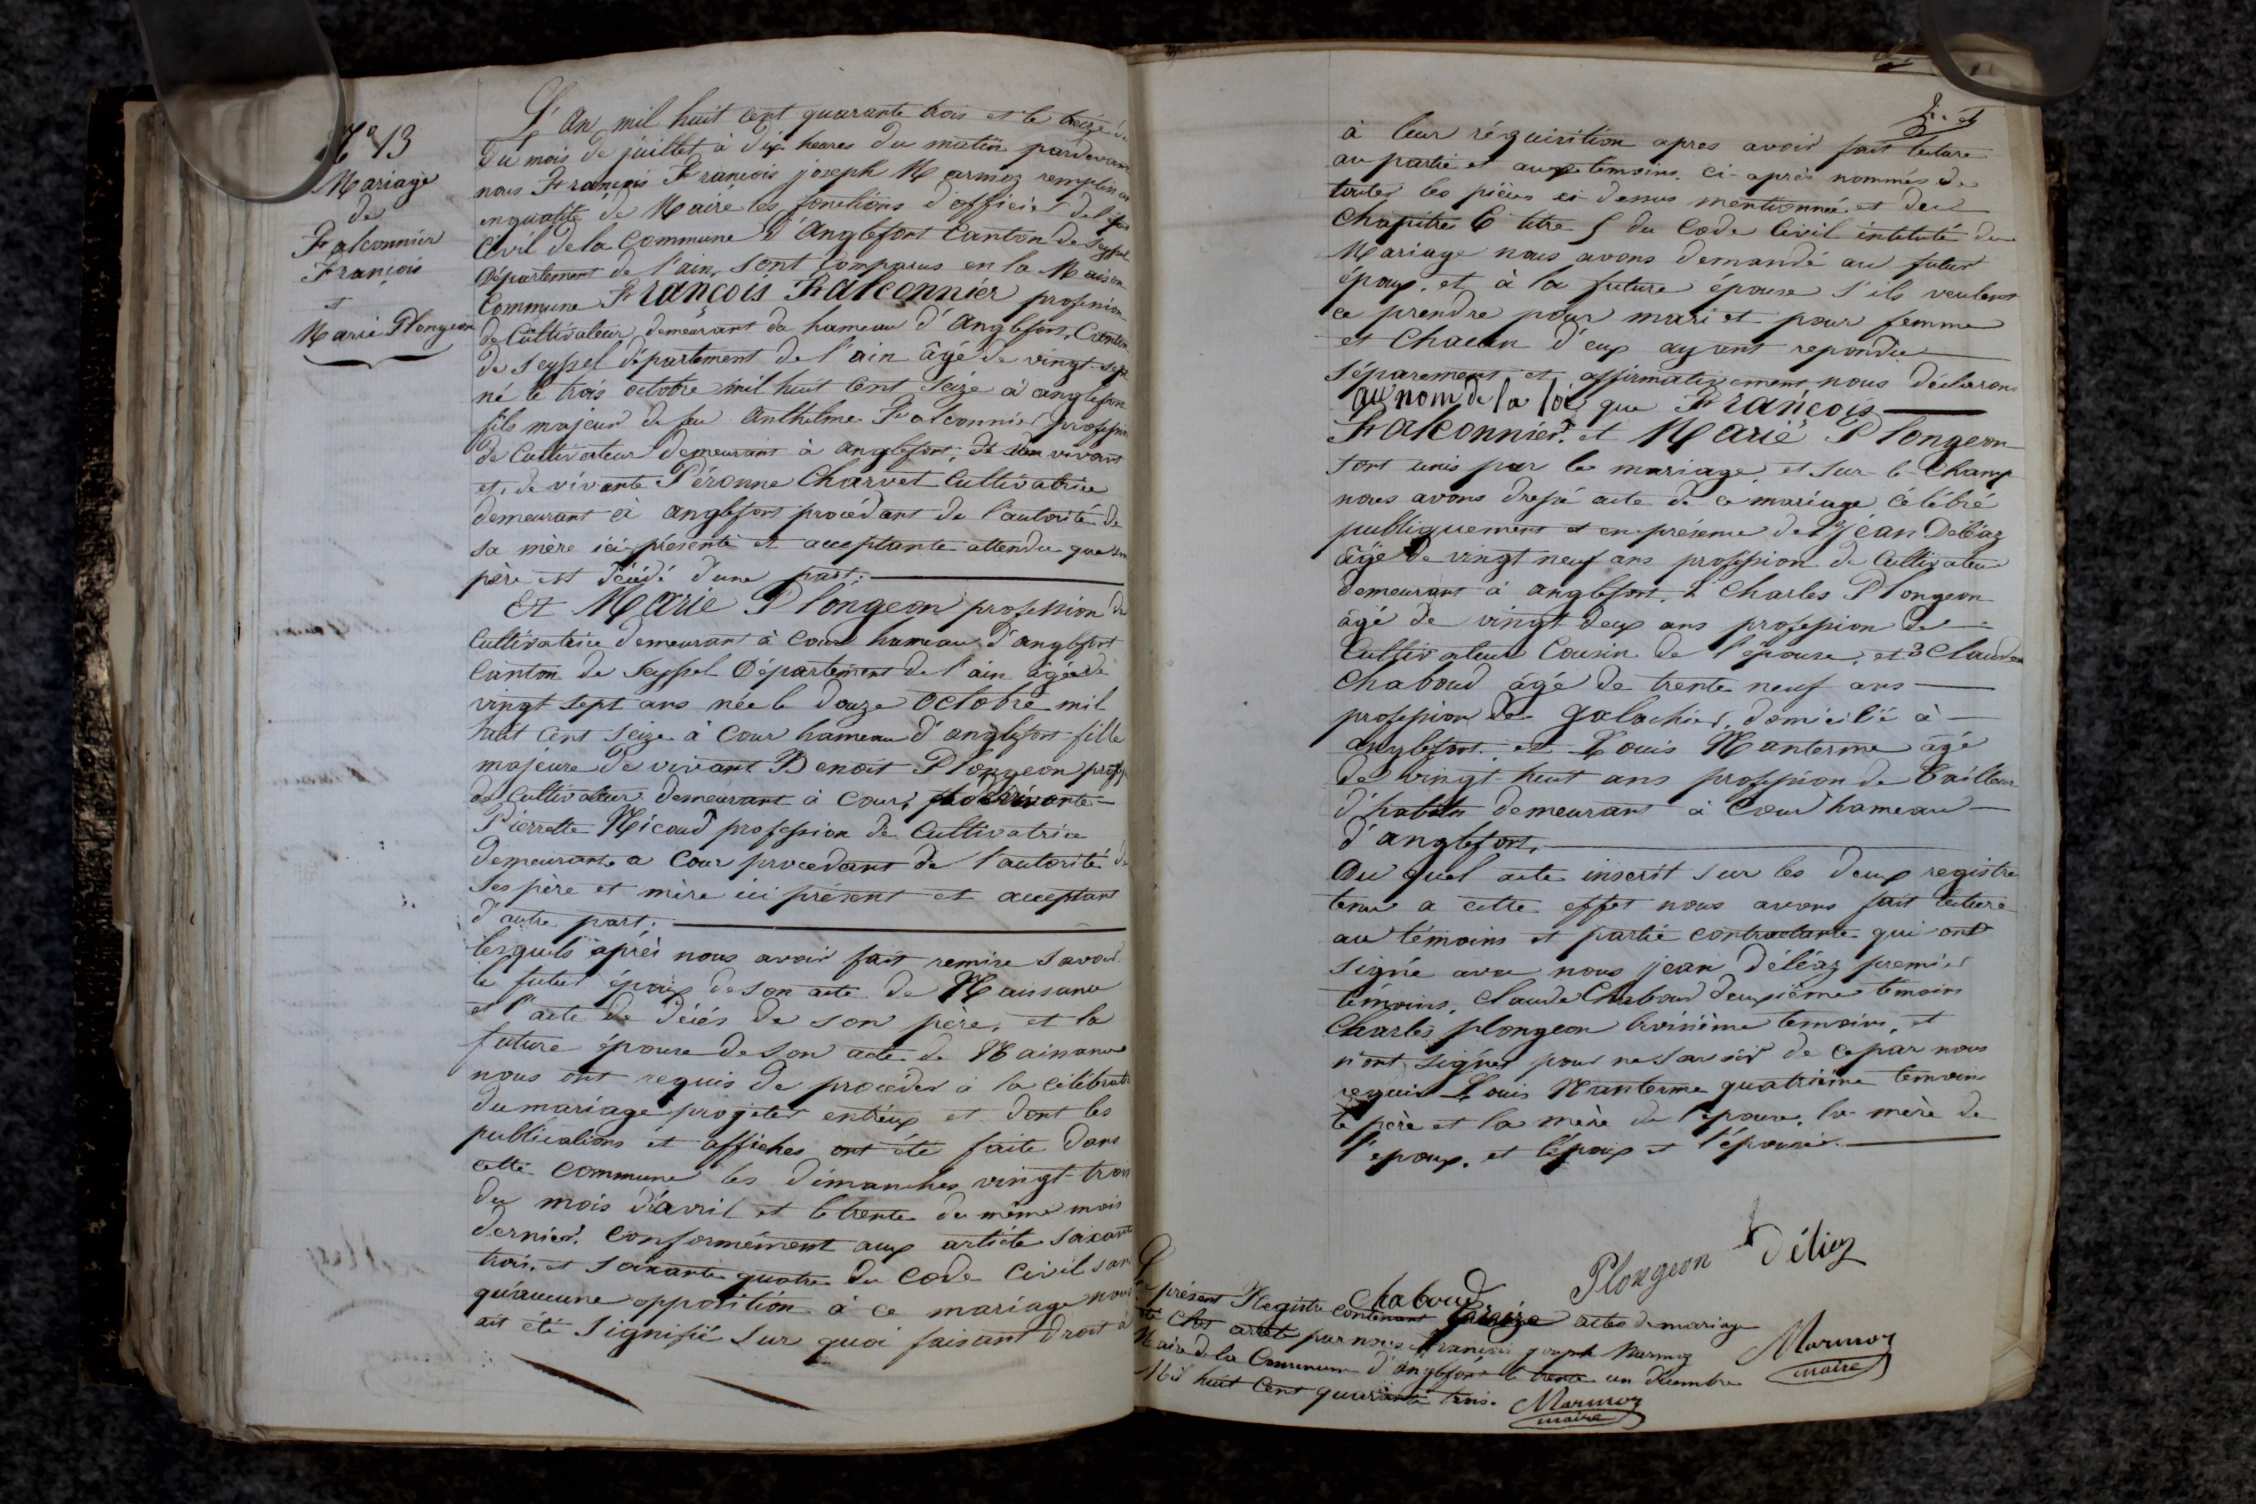 N° 13
Mariage
de
Falconnier
François
et
Marie Plongeon
L'An mil huit cent quarante trois et le treize
du mois de juillet, à dix heures du matin pardevant
nous François François joseph Marmoz remplissant
en qualité de Maire les fonctions d'officier de l'état
Civil de la Commune d'Anglefort Canton de Seyssel
Département de l'ain, sont Comparus en la Maison
Commune François Falconnier profession
de Cultivateur demeurant da hameau d'Anglefort, Canton
de Seyssel département de l'ain âgé de vingt sept
né le trois octobre mil huit Cent Seize à anglefort
fils majeur de feu Anthelme Falconnier profession
de Cultivateur demeurant à anglefort, de son vivant
et, de vivante Péronne Charvet Cultivatrice
demeurant à anglefort procédant de l'autorité de
sa mère ici présente et acceptante attendu que son
père est décédé d'une part.
Et Marie Plongeon profession de
Cultivatrice demeurant à Cour hameau d'anglefort
Canton de Seyssel Département de l'ain âgée de
vingt sept ans née le douze octobre mil
huit Cent Seize à Cour hameau d'anglefort fille
majeure de vivant Benoit Plongeon prof
de Cultivateur demeurant à Cour, de vivante
Pierrette Nicoud profession de Cultivatrice
demeurante a Cour procedant de l'autorité de
ses père et mère ici présent et acceptant
d'autre part.
lesquels après nous avoir fait remise savoir
le futur époux de son acte de Naissance
et l'acte de décés de son père, et la
future épouse de son acte de Naissance
nous ont requis de procéder à la célébration
du mariage projeter entreux et dont les
publications et affiches ont été faite dans
cette Commune les dimanches vingt trois
du mois d'avril et le trente du même mois
dernier. conformément aux article soixante
trois, et soixante quatre du Code Civil sans
qu'aucune opposition à ce mariage nous
ait été signifié sur quoi faisant droit à
à leur réquisition apres avoir fait lecture
au partie et aux temoins. ci-après nommés de
toutes les pièces ci-dessus mentionnée et du
Chapitre 6 titre 5 du Code Civil intitulé du
Mariage nous avons demandé au futur
époux, et à la future épouse s'ils veulent
ce prendre pour mari et pour femme
et Chacun d'eux ayant repondu
séparement et affirmativement nous déclarons
au nom de la loi que François
Falconnier et Marie Plongeon
sont unis par le mariage, et sur le Champ
nous avons dressé acte de ce mariage célébré
publiquement et en présence de 1° jean Déléaz
âgé de vingt neuf ans profession de Cultivateur
demeurant à anglefort, 2° Charles Plongeon
âgé de vingt deux ans profession de
Cultivateur Cousin de l'épouse, et 3° Claude
Chaboud âgé de trente neuf ans
profession de galochier, domicilié à
anglefort. et Louis Nanterme âgé
de vingt huit ans profession de Tailleur
d'habits demeurant à Cour hameau
d'anglefort.
Du quel acte inscrit sur les deux registre
tenu a cette effet nous avons fait lecture
au témoins et partie contractante qui ont
signé avec nous jean déléaz premier
témoins, Claude Chaboud deuxième temoins
Charles plongeon troisième temoins, et
n'ont signer pour ne savoir de ce par nous
requis Louis Nanterme quatrième temoin
le père et la mère de l'épouse, la mère de
l'epoux, et l'époux et l'épouse.
Plongeon Déliaz
Chaboud
Le présent Registre contenant treize actes de mariage
été Clos arreté par nous François joseph Marmoz
Maire de la Commune d'Anglefort le trente un décembre
Mil huit Cent quarante trois.
Marmoz
maire
Marmoz
maire